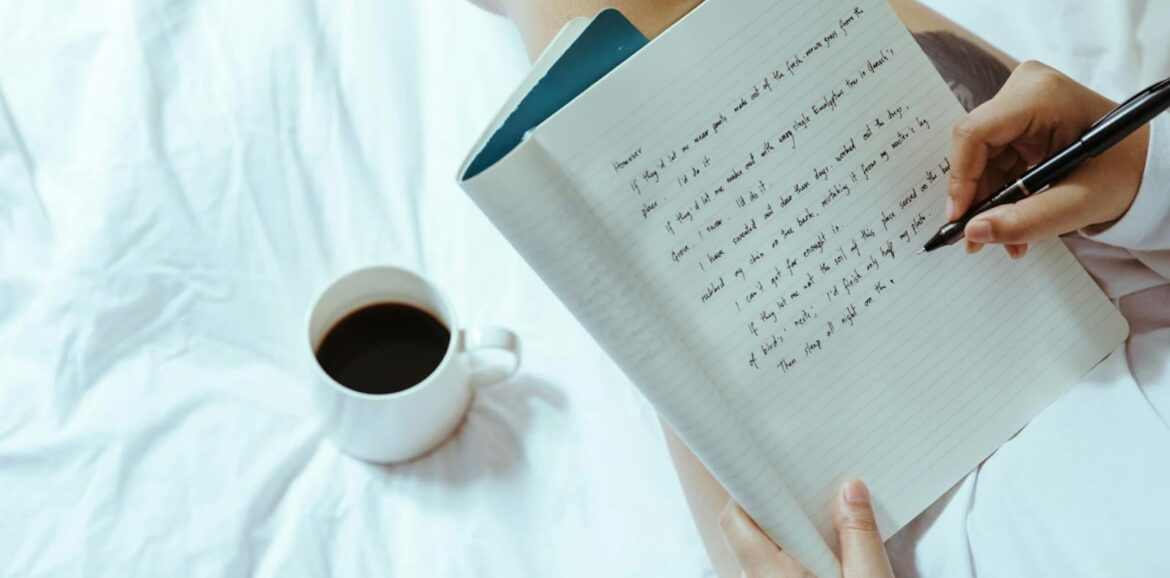 However
If they'd let me wear pants made out of the fresh-mown grass from the
place. I'd do it.
If they'd let me make out with every single Eucalyptus tree in
Grove. I swear. I'd do it.
I have sweated out dear them days. worked out the drugs.
my chin on tree bark, mistaking it from my master's leg
I can't get far enough in.
If they let me eat the soil of this place served on the bed
of birds' nests, I'd finish only half my plate.
Then sleep all night on the